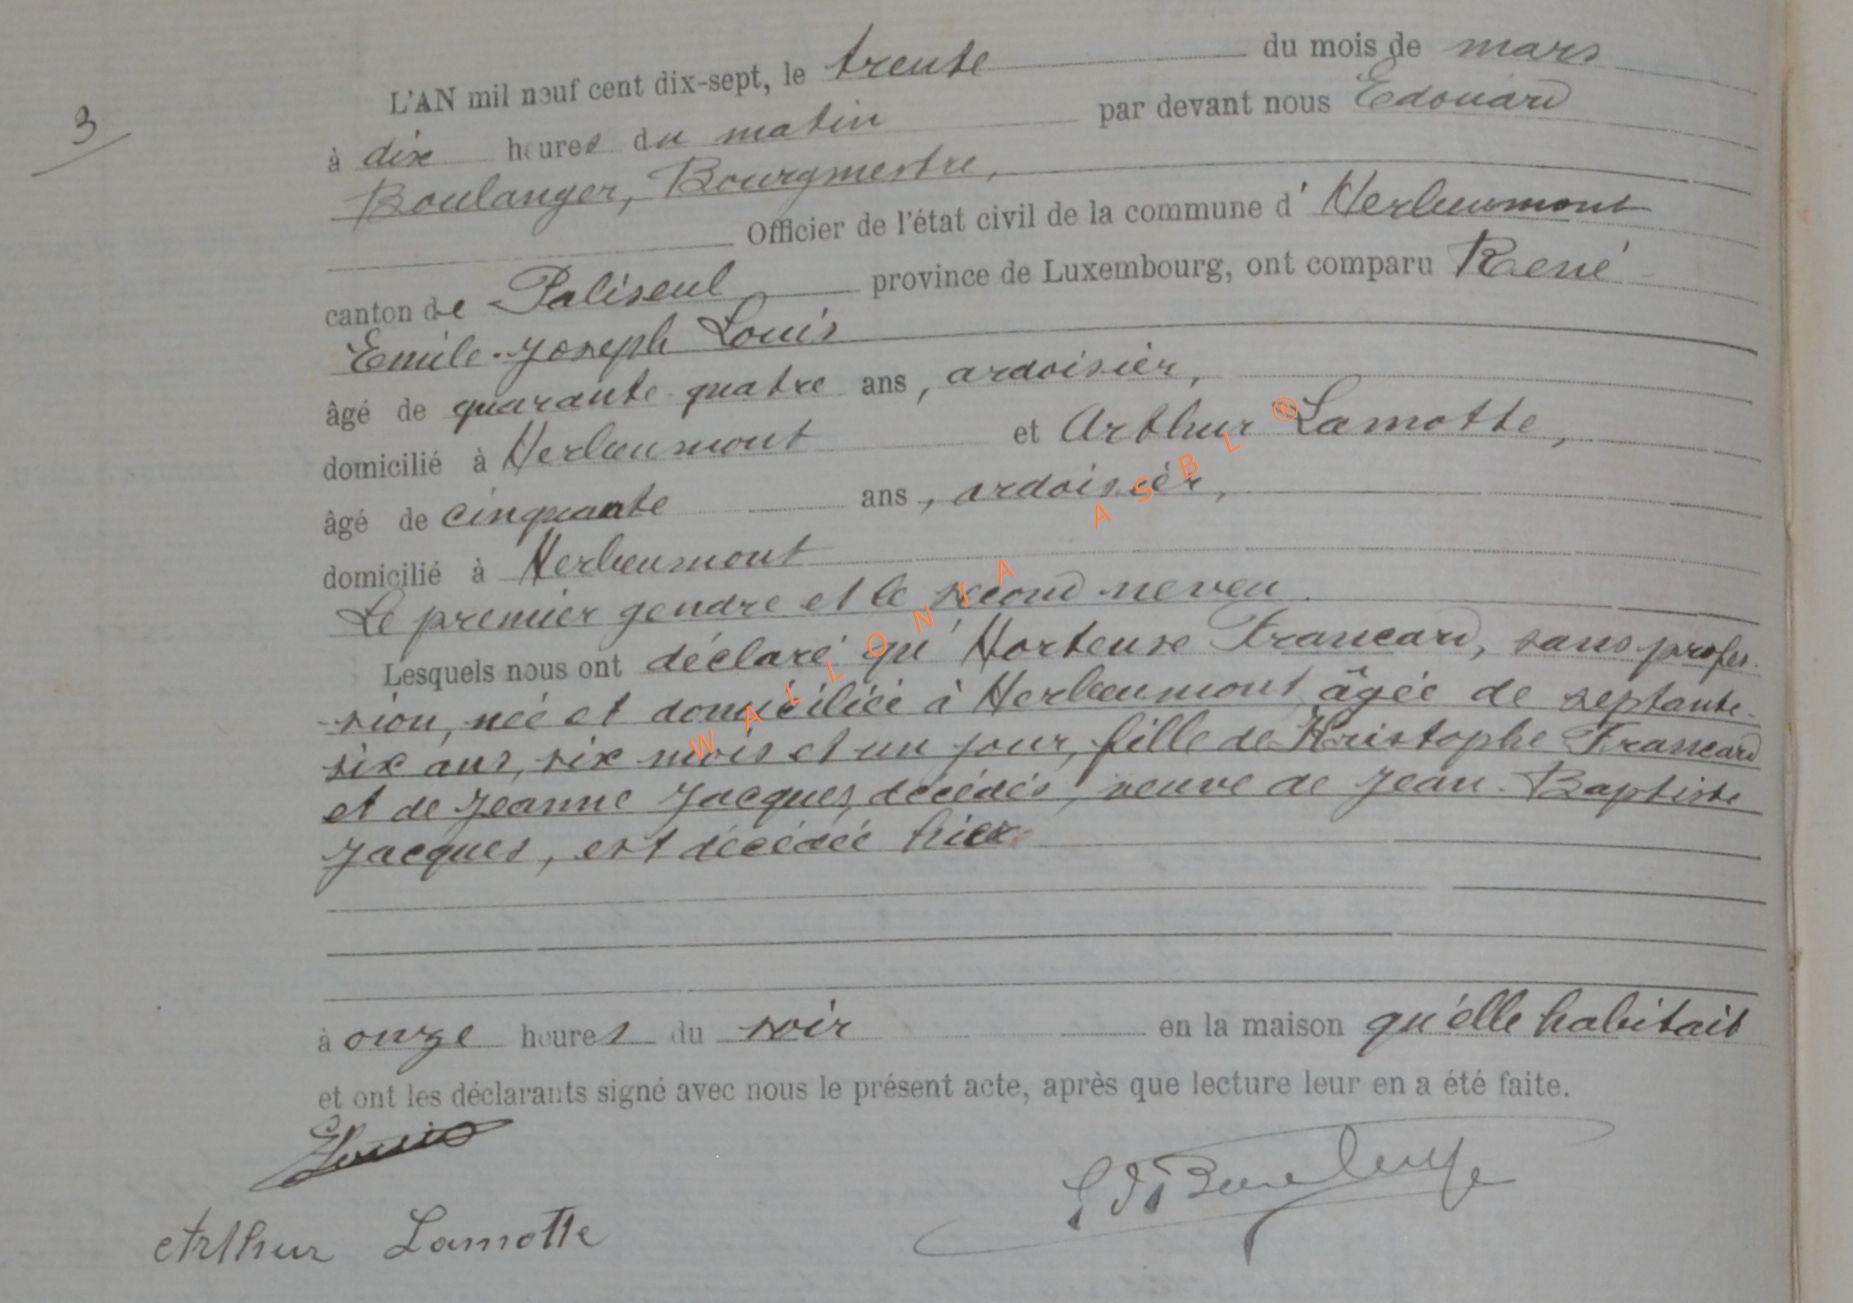 3
L'AN mil neuf cent dix-sept, le trente du mois de mars
à dix heures du matin par devant nous Edouard
Boulanger, Bourgmestre,
Officier de l'état civil de la commune d' Herbeumont
canton de Paliseul province de Luxembourg, ont comparu René
Emile-Joseph Louis
âgé de quarante-quatre ans, ardoisier,
domicilié à Herbeumont et Arthur Lamotte,
âgé de cinquante ans, ardoisièr,
domicilié à Herbeumont
Le premier gendre et le second neveu.
Lesquels nous ont déclaré qu' Hortense Francard, sans profes-
sion, née et domiciliée à Herbeumont, âgée de septante-
six ans, six mois et un jour, fille de Kristophe Francard
et de Jeanne Jacques, décédés, veuve de Jean-Baptiste
Jacques, est décédée hier
à onze heures du soir en la maison qu'elle habitait
et ont les déclarants signé avec nous le présent acte, après que lecture leur en a été faite.
ELouis
Arthur Lamotte
WALLONIA ASBL ®